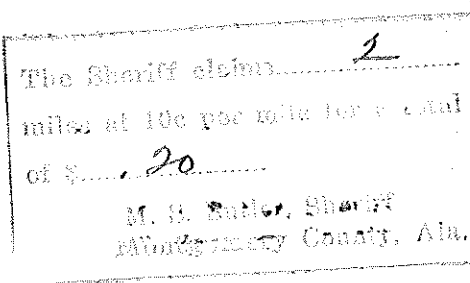 The Sheriff claims 2
miles at 10c per mile for a total
of $ .20
M. S. Butler, Sheriff
Montgomery County, Ala.